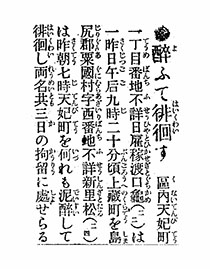 ●醉ふて徘徊す 區内天妃町
一丁目番地不詳日雇稼渡口龜は
一昨日午后九時二十分頃上藏町を島
尻郡粟國村字西番地不詳新里松(二四)
は昨朝七時天妃町を何れも泥醉して
徘徊し両名共三日の拘留に處せらる